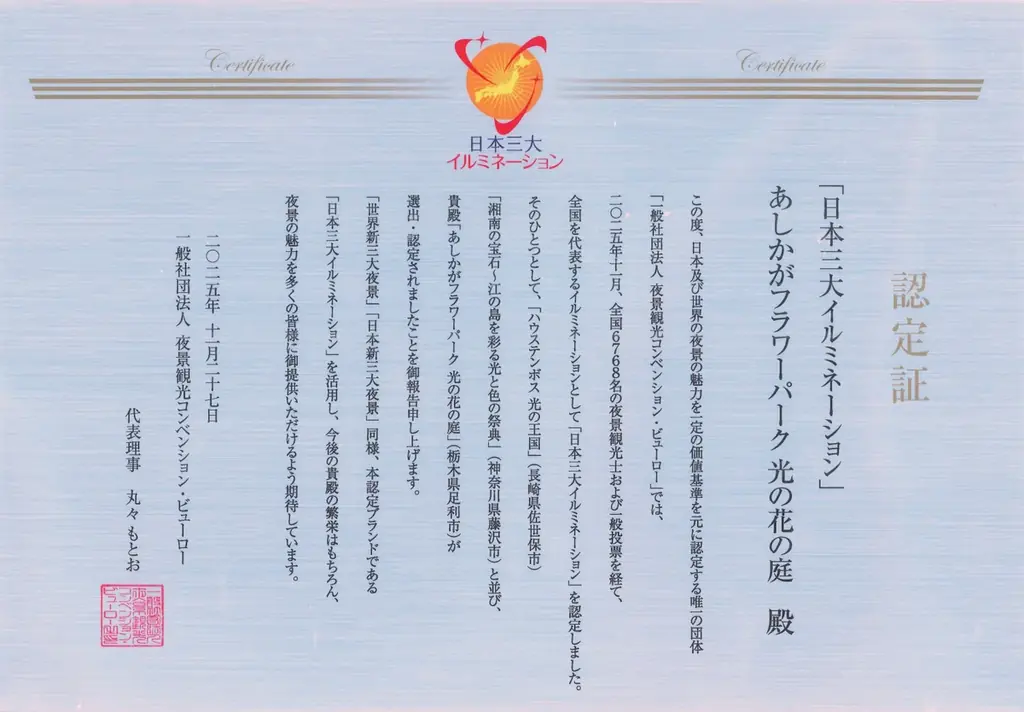 Certificate
Certificate
日本三大
イルミネーション
認定証
「日本三大イルミネーション」
あしかがフラワーパーク 光の花の庭 殿
この度、日本及び世界の夜景の魅力を一定の価値基準を元に認定する唯一の団体
「一般社団法人 夜景観光コンベンション・ビューロー」では、
二〇二五年十一月、全国6768名の夜景観光士および一般投票を経て、
全国を代表するイルミネーションとして「日本三大イルミネーション」を認定しました。
そのひとつとして、「ハウステンボス 光の王国」（長崎県佐世保市）
「湘南の宝石～江の島を彩る光と色の祭典」（神奈川県藤沢市）と並び、
貴殿「あしかがフラワーパーク 光の花の庭」（栃木県足利市）が
選出・認定されましたことを御報告申し上げます。
「世界新三大夜景」「日本新三大夜景」同様、本認定ブランドである
「日本三大イルミネーション」を活用し、今後の貴殿の繁栄はもちろん、
夜景の魅力を多くの皆様に御提供いただけるよう期待しています。
二〇二五年 十一月二十七日
一般社団法人 夜景観光コンベンション・ビューロー
代表理事 丸々もとお